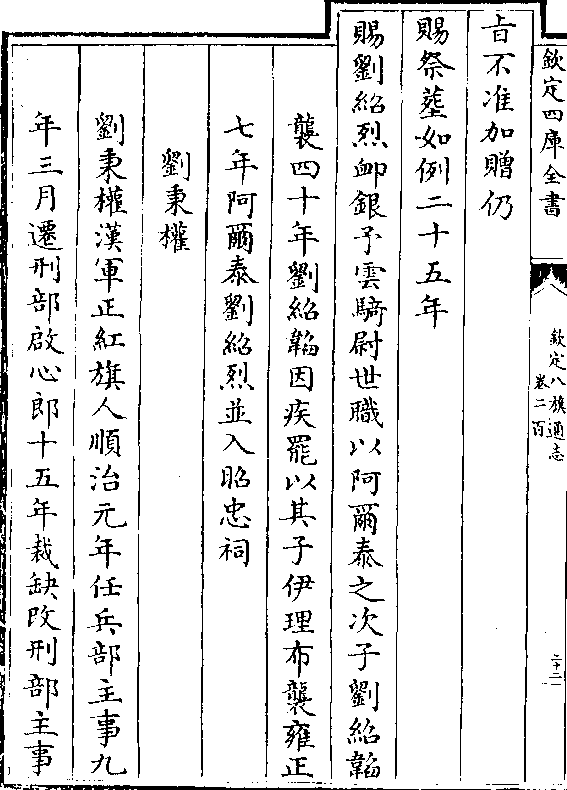 欽定四庫全書
欽定八旗通志
卷二百
二十二
㫖不准加贈仍
賜祭塟如例二十五年
賜劉紹烈䘏銀予雲騎尉世職以阿爾泰之次子劉紹韜
襲四十年劉紹韜因疾罷以其子伊理布襲雍正
七年阿爾泰劉紹烈並入昭忠祠
劉秉權
劉秉權漢軍正紅旗人順治元年任兵部主事九
年三月遷刑部啟心郎十五年裁缺改刑部主事